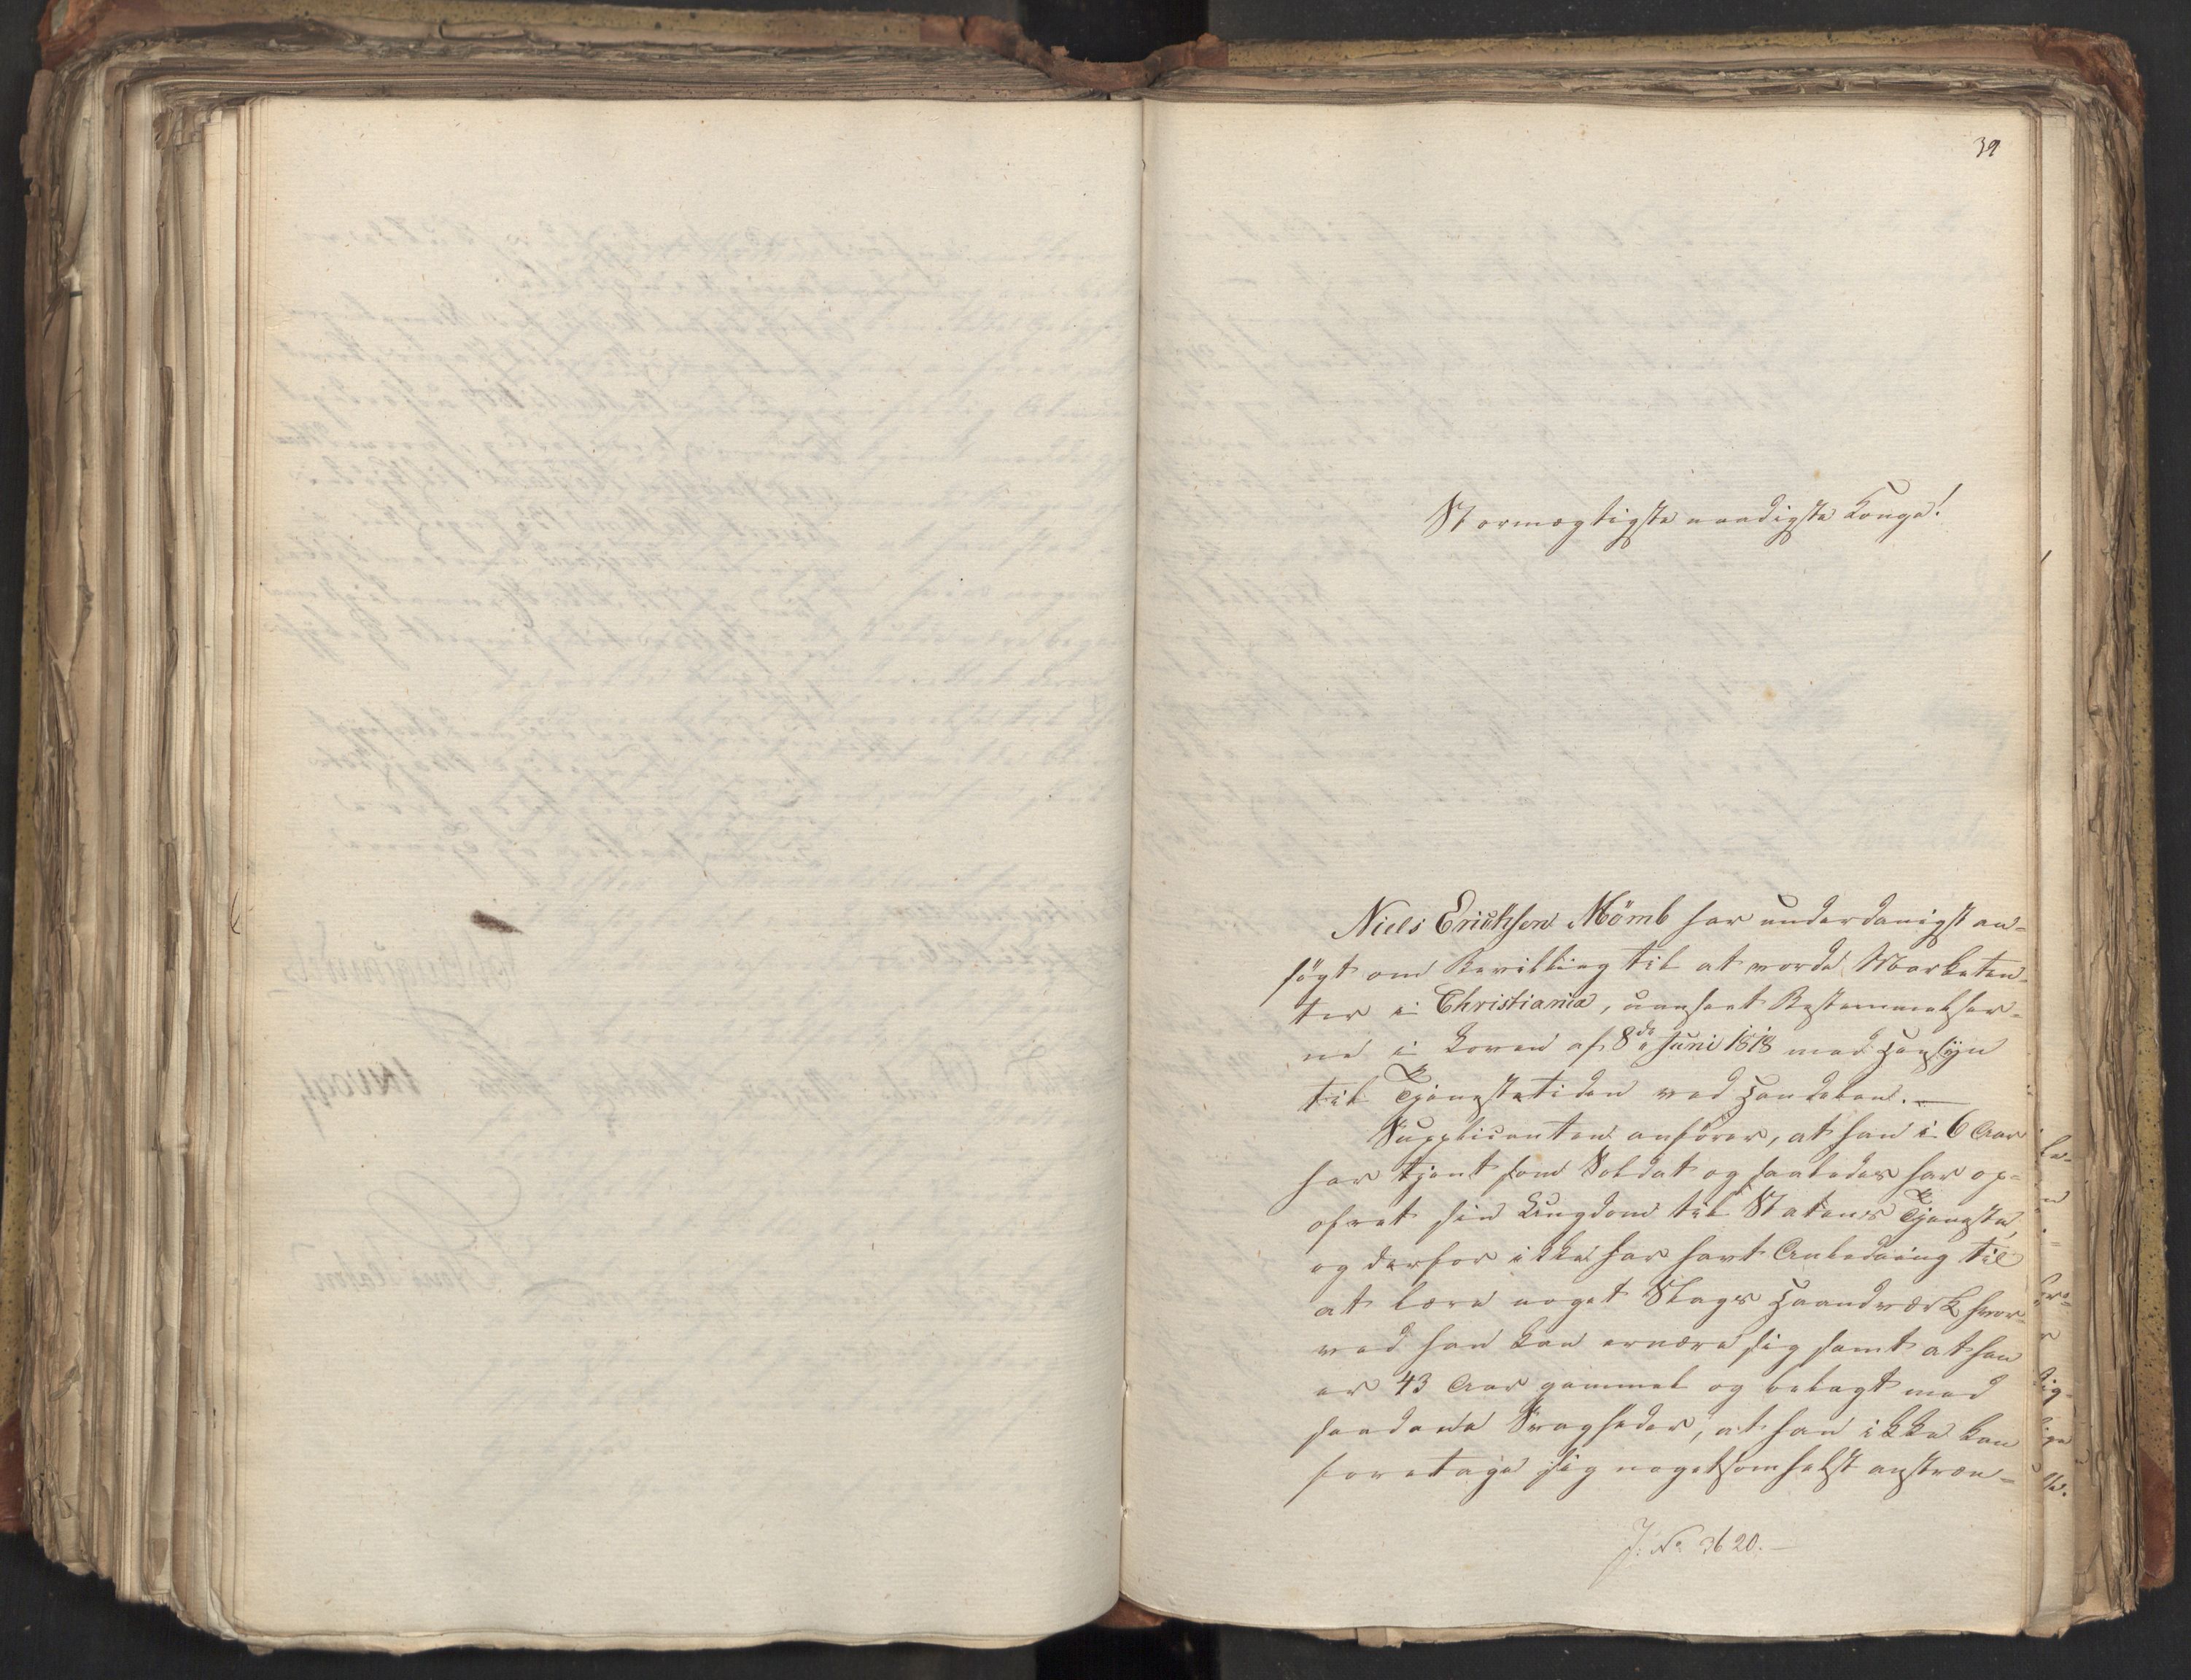 39
Stormægtigste naadigste Konge!
Niels Erichsen Mömb har underdanigst an-
søgt om Bevilling til at vorde Marketen-
ter i Christiania, uanseet Bestemmelser-
ne i Loven af 8de Juni 1818 med Hensyn
til Tjenestetiden ved Handelen. —
Supplicanten anfører, at han i 6 Aar
har tjent som Soldat og saaledes har op-
ofret sin Ungdom til Statens Tjeneste,
og derfor ikke har havt Anledning til
at lære noget Slags Haandværk hvor-
ved han kan ernære sig samt at han
er 43 Aar gammel og belagt med
saadane Svagheder, at han ikke kan
foretage sig nogetsomhelst anstræn-
J. No 3620. —